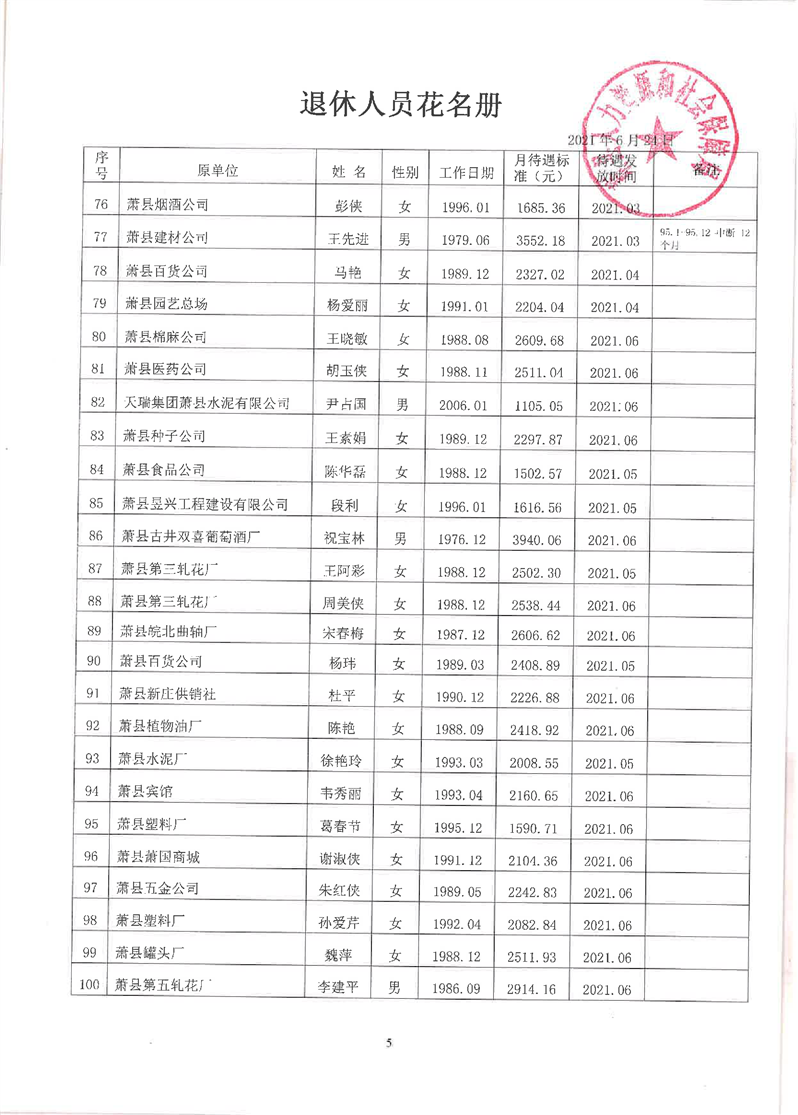 退休人员花名册
2021年6月21日
序号 原单位 姓名 性别 工作日期 月待遇标准（元） 待遇发放时间 备注
76 萧县烟酒公司 彭侠 女 1996.01 1685.36 2021.03
77 萧县建材公司 王先进 男 1979.06 3552.18 2021.03 95.1-95.12 中断 12个月
78 萧县百货公司 马艳 女 1989.12 2327.02 2021.04
79 萧县园艺总场 杨爱丽 女 1991.01 2204.04 2021.04
80 萧县棉麻公司 王晓敏 女 1988.08 2609.68 2021.06
81 萧县医药公司 胡玉侠 女 1988.11 2511.04 2021.06
82 天瑞集团萧县水泥有限公司 尹占国 男 2006.01 1105.05 2021.06
83 萧县种子公司 王素娟 女 1989.12 2297.87 2021.06
84 萧县食品公司 陈华磊 女 1988.12 1502.57 2021.05
85 萧县昱兴工程建设有限公司 段利 女 1996.01 1616.56 2021.05
86 萧县古井双喜葡萄酒厂 祝宝林 男 1976.12 3940.06 2021.06
87 萧县第三轧花厂 王阿彩 女 1988.12 2502.30 2021.05
88 萧县第三轧花厂 周美侠 女 1988.12 2538.44 2021.06
89 萧县皖北曲轴厂 宋春梅 女 1987.12 2606.62 2021.06
90 萧县百货公司 杨玮 女 1989.03 2408.89 2021.05
91 萧县新庄供销社 杜平 女 1990.12 2226.88 2021.06
92 萧县植物油厂 陈艳 女 1988.09 2418.92 2021.06
93 萧县水泥厂 徐艳玲 女 1993.03 2008.55 2021.05
94 萧县宾馆 韦秀丽 女 1993.04 2160.65 2021.06
95 萧县塑料厂 葛春节 女 1995.12 1590.71 2021.06
96 萧县萧国商城 谢淑侠 女 1991.12 2104.36 2021.06
97 萧县五金公司 朱红侠 女 1989.05 2242.83 2021.06
98 萧县塑料厂 孙爱芹 女 1992.04 2082.84 2021.06
99 萧县罐头厂 魏萍 女 1988.12 2511.93 2021.06
100 萧县第五轧花厂 李建平 男 1986.09 2914.16 2021.06
5